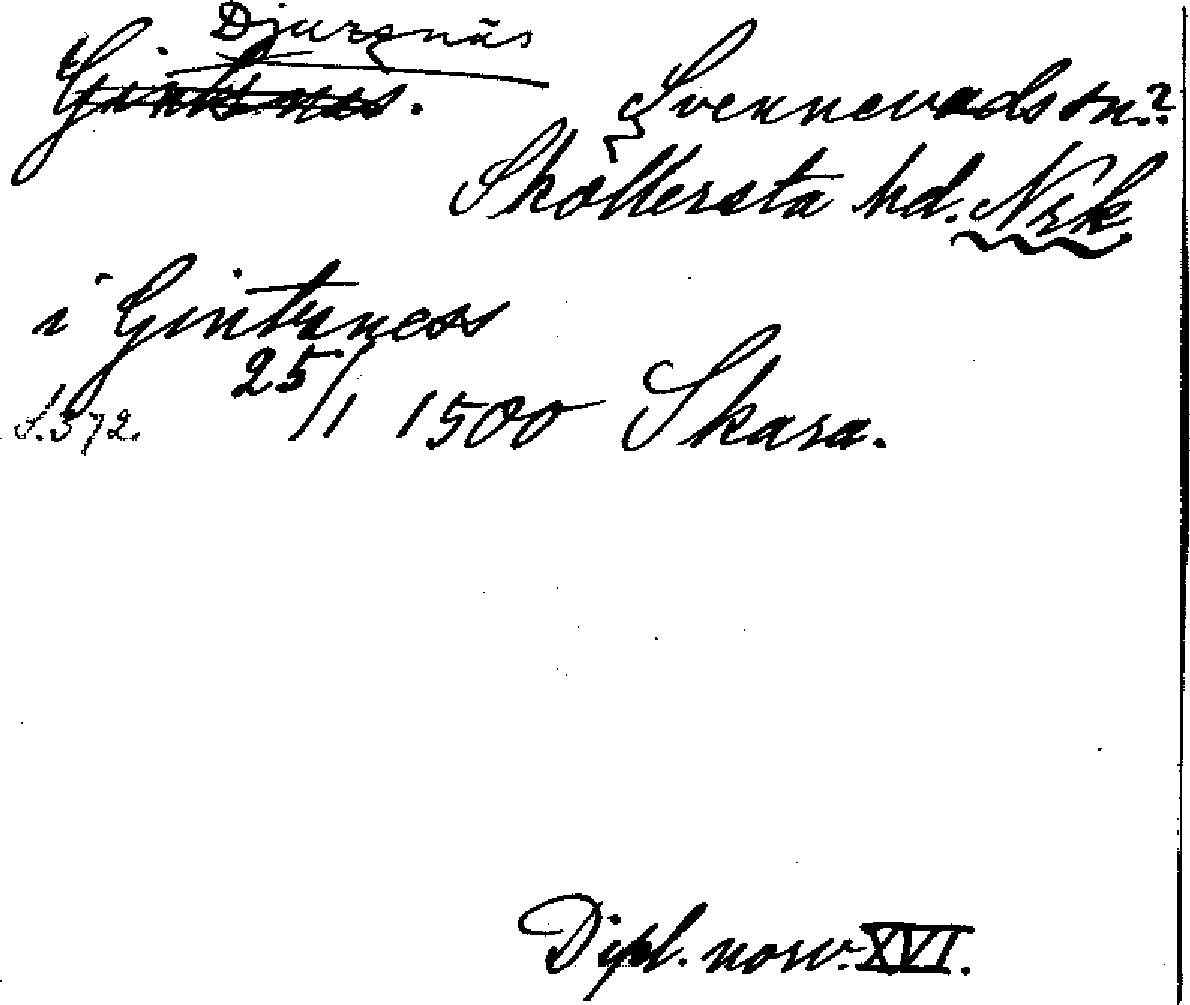 Djursnäs
Svennevads sn.?
Sköllersta hd. Nrk
i Gintzness
S. 372. 25/1 1500 Skara.
Dipl. norv. XVI.